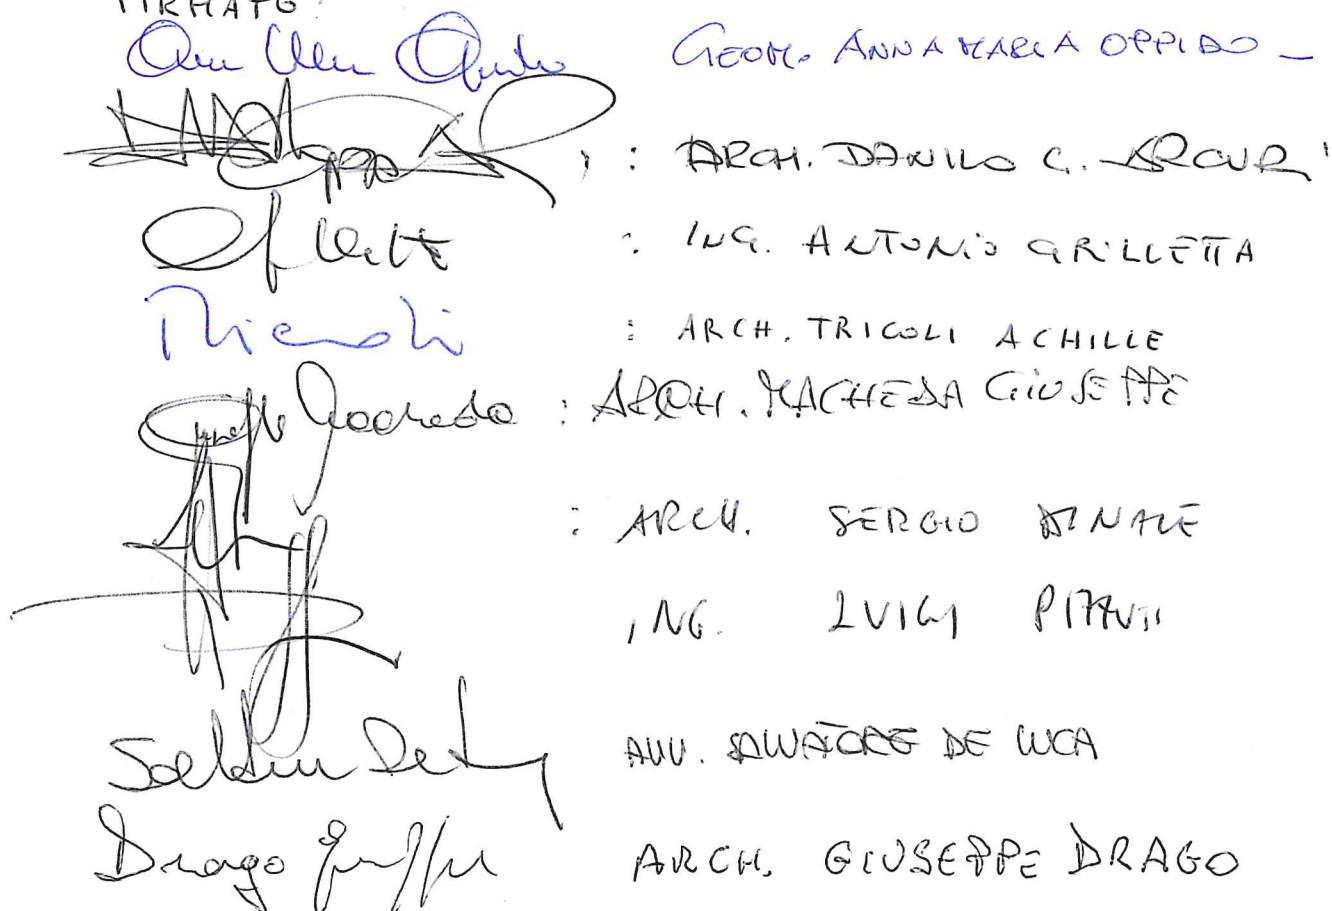 FIRMATO:
GEOM. ANNA MARIA OPPIDO -
: ARCH. DANILO C. ARCURI
: ING. ANTONIO GRILLETTA
Tricoli : ARCH. TRICOLI ACHILLE
Macheda : ARCH. MACHEDA GIUSEPPE
: ARCH. SERGIO DINALE
ING. LUIGI
De Luca AVV. SALVATORE DE LUCA
Drago Giuseppe ARCH. GIUSEPPE DRAGO